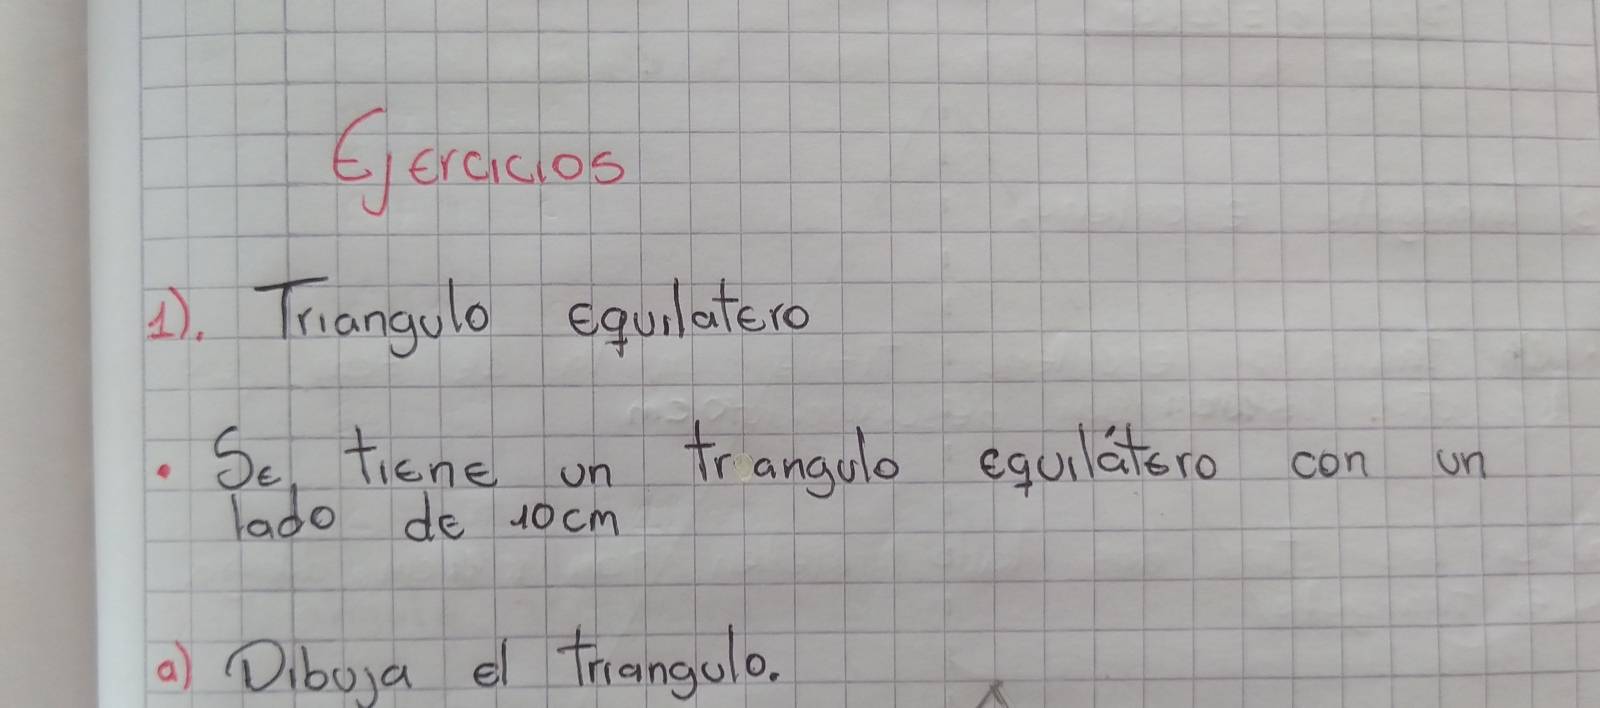 Ejercicios
1). Triangulo equilatero
• Se tiene un triangulo equilátero con un
lado de 10cm
a) Dibuja el triangulo.